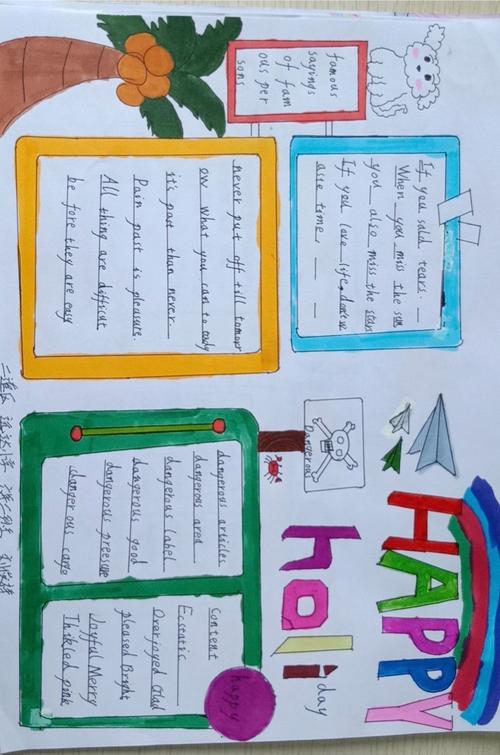 HAPPY
holiday
famous
sayings
of fam
ous per
sons
If you sald tears.
When you miss the sun
you also miss the stars
If you love life, don't w
aste time.
never put off till tomorr
ow what you can to tody
it's past than never
Pain past is pleasure.
All thing are difficult
be fore they are easy
Dangerous
dangerous articles
dangerous area
dangerous label
dangerous good
dangerous preesure
dangerous cargo
Content
Eccentric
Overjoyed Glad
pleased Bright
Joyful Merry
Thickled pink
happy